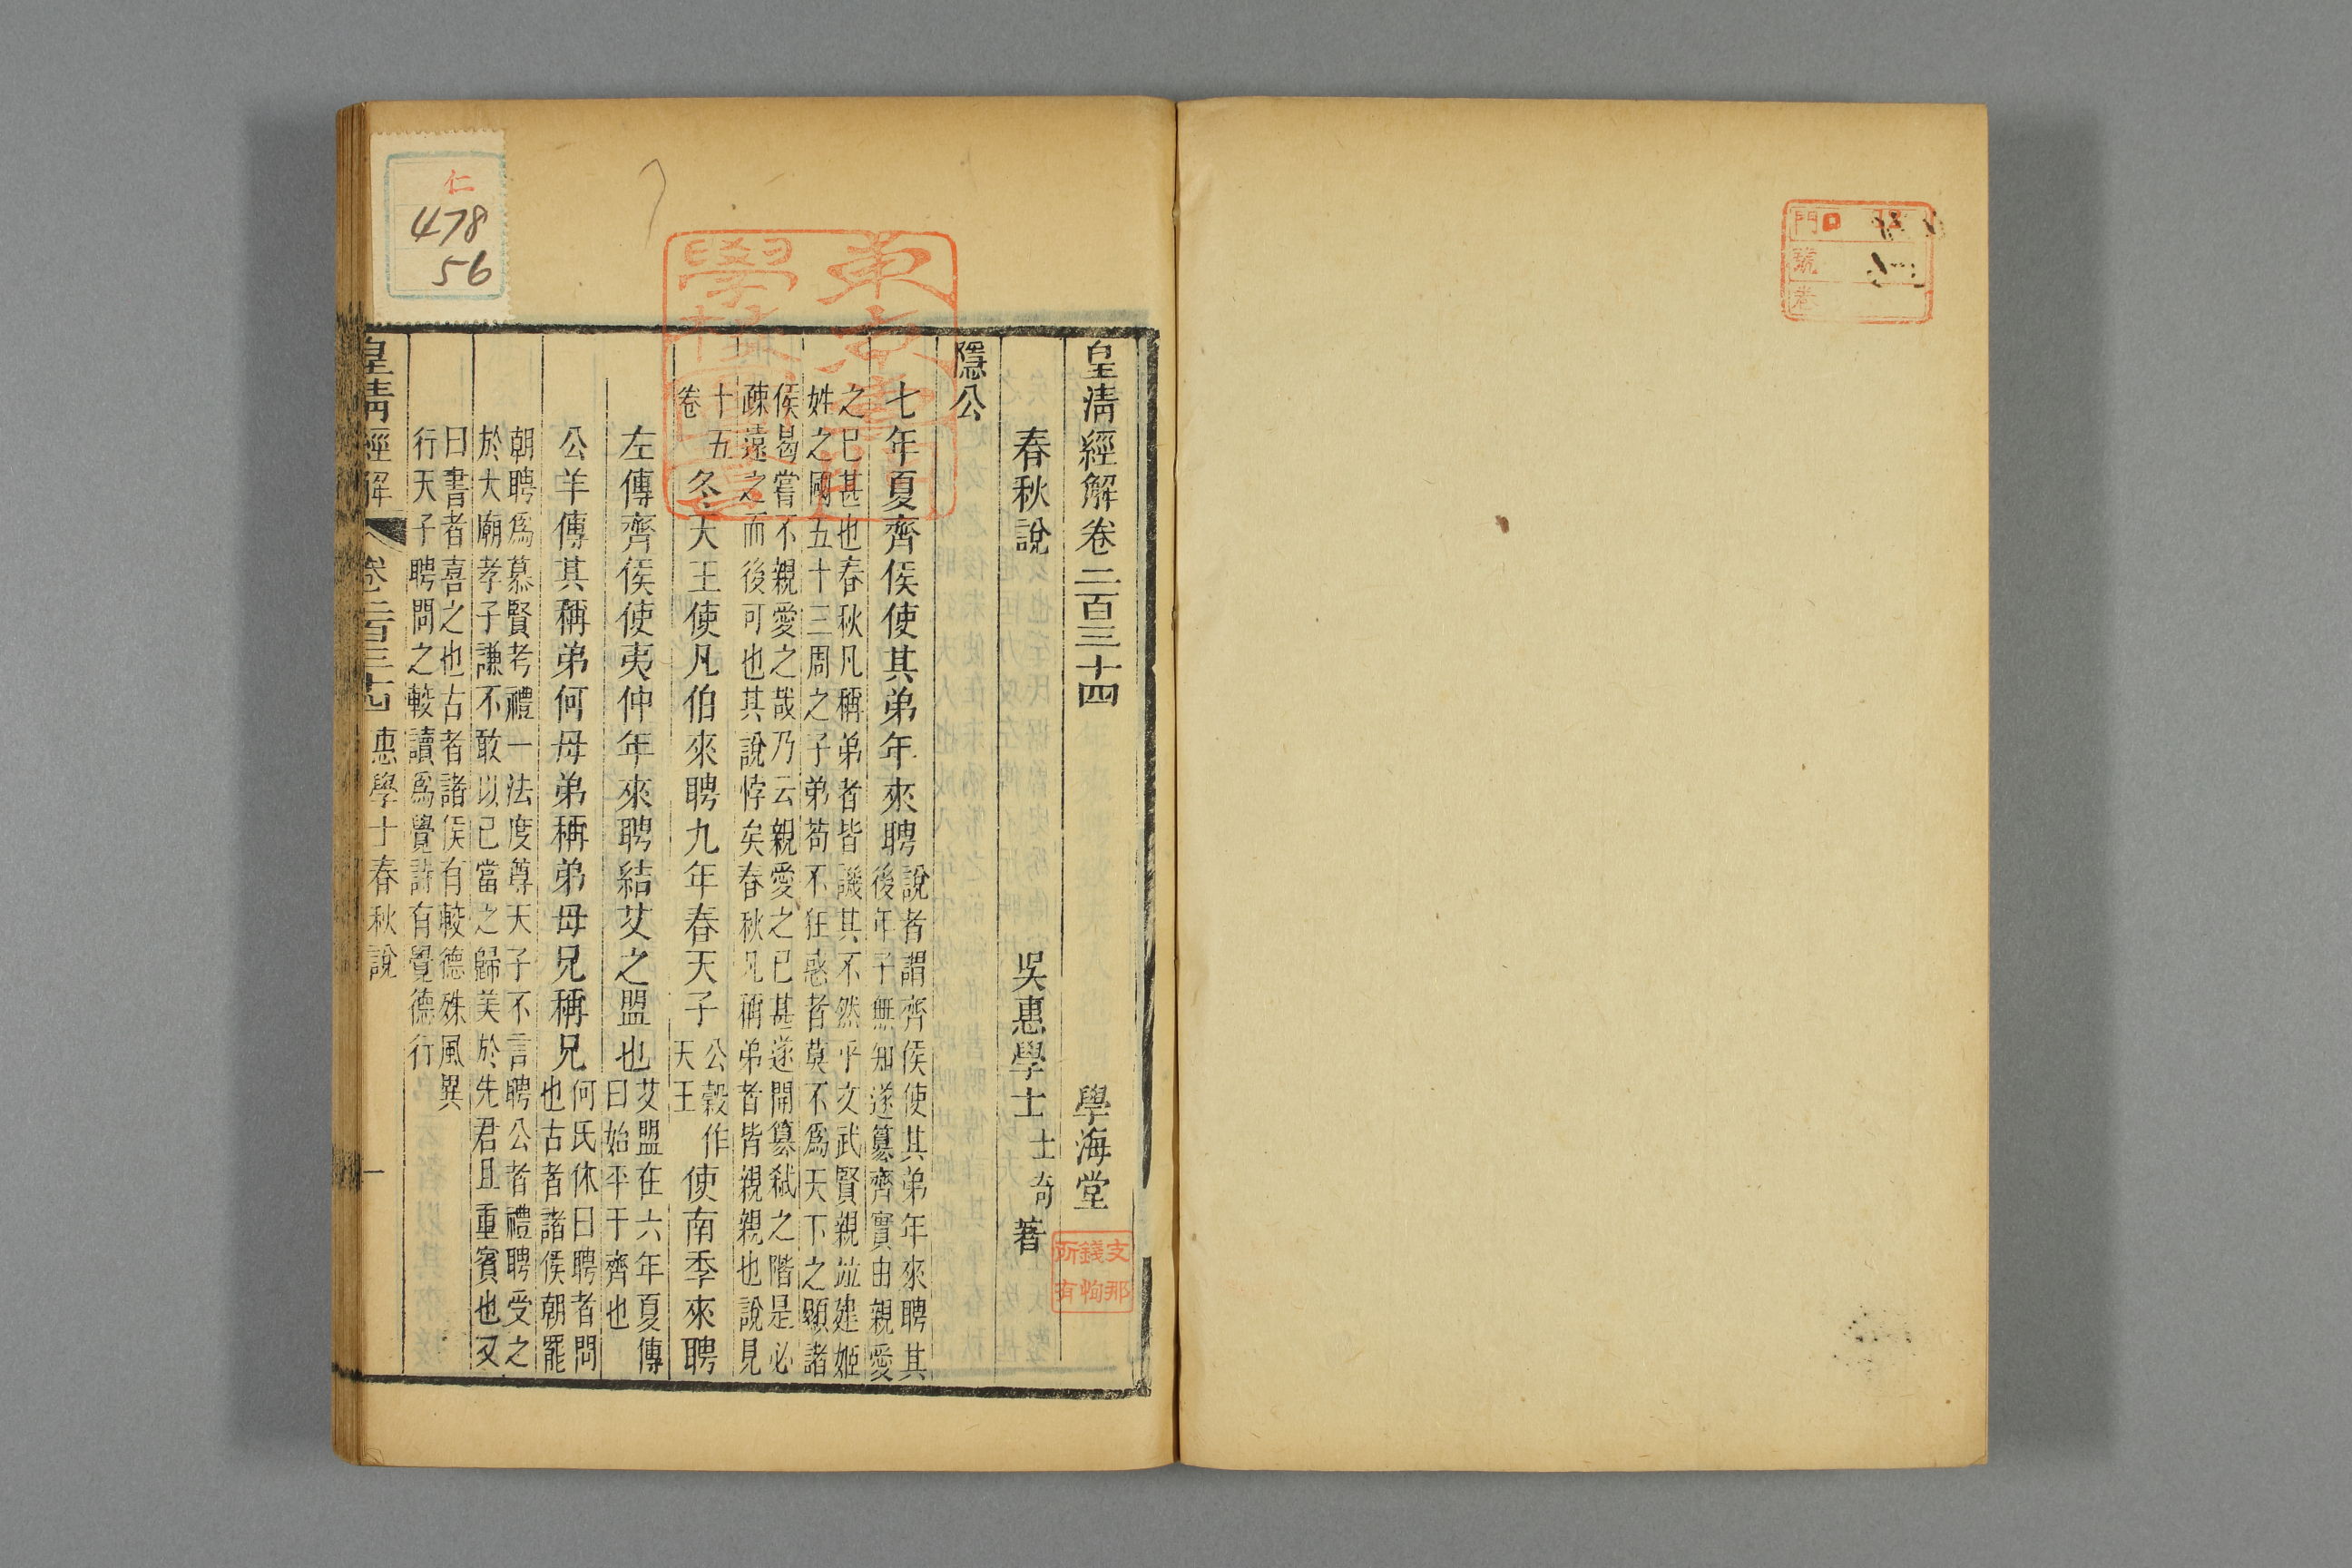 皇清經解卷二百三十四
學海堂
春秋說
吳惠學士士奇著
隱公
七年夏齊侯使其弟年來聘
說者謂齊侯使其弟年來聘其
後年子無知遂篡齊實由親愛
之已甚也春秋凡稱弟者皆譏其不然乎文武賢親竝建姬
姓之國五十三周之子弟苟不狂惑者莫不爲天下之顯諸
侯曷嘗不親愛之哉乃云親愛之已甚遂開篡弒之階是必
疎遠之而後可也其說悖矣春秋凡稱弟者皆親親也說見
十五
卷
冬天王使凡伯來聘九年春天子
公穀作
天王
使南季來聘
左傳齊侯使夷仲年來聘結艾之盟也
艾盟在六年夏傳
曰始平于齊也
公羊傳其稱弟何母弟稱弟母兄稱兄
何氏休曰聘者問
也古者諸侯朝罷
朝聘爲慕賢考禮一法度尊天子不言聘公者禮聘受之
於大廟孝子謙不敢以已當之歸美於先君且重賓也又
曰書者喜之也古者諸侯有較德殊風異
行天子聘問之較讀爲覺詩有覺德行
皇清經解
卷二百三十四
惠學士春秋說
一
仁
478
56
支那
錢恂
所有
門
號
卷